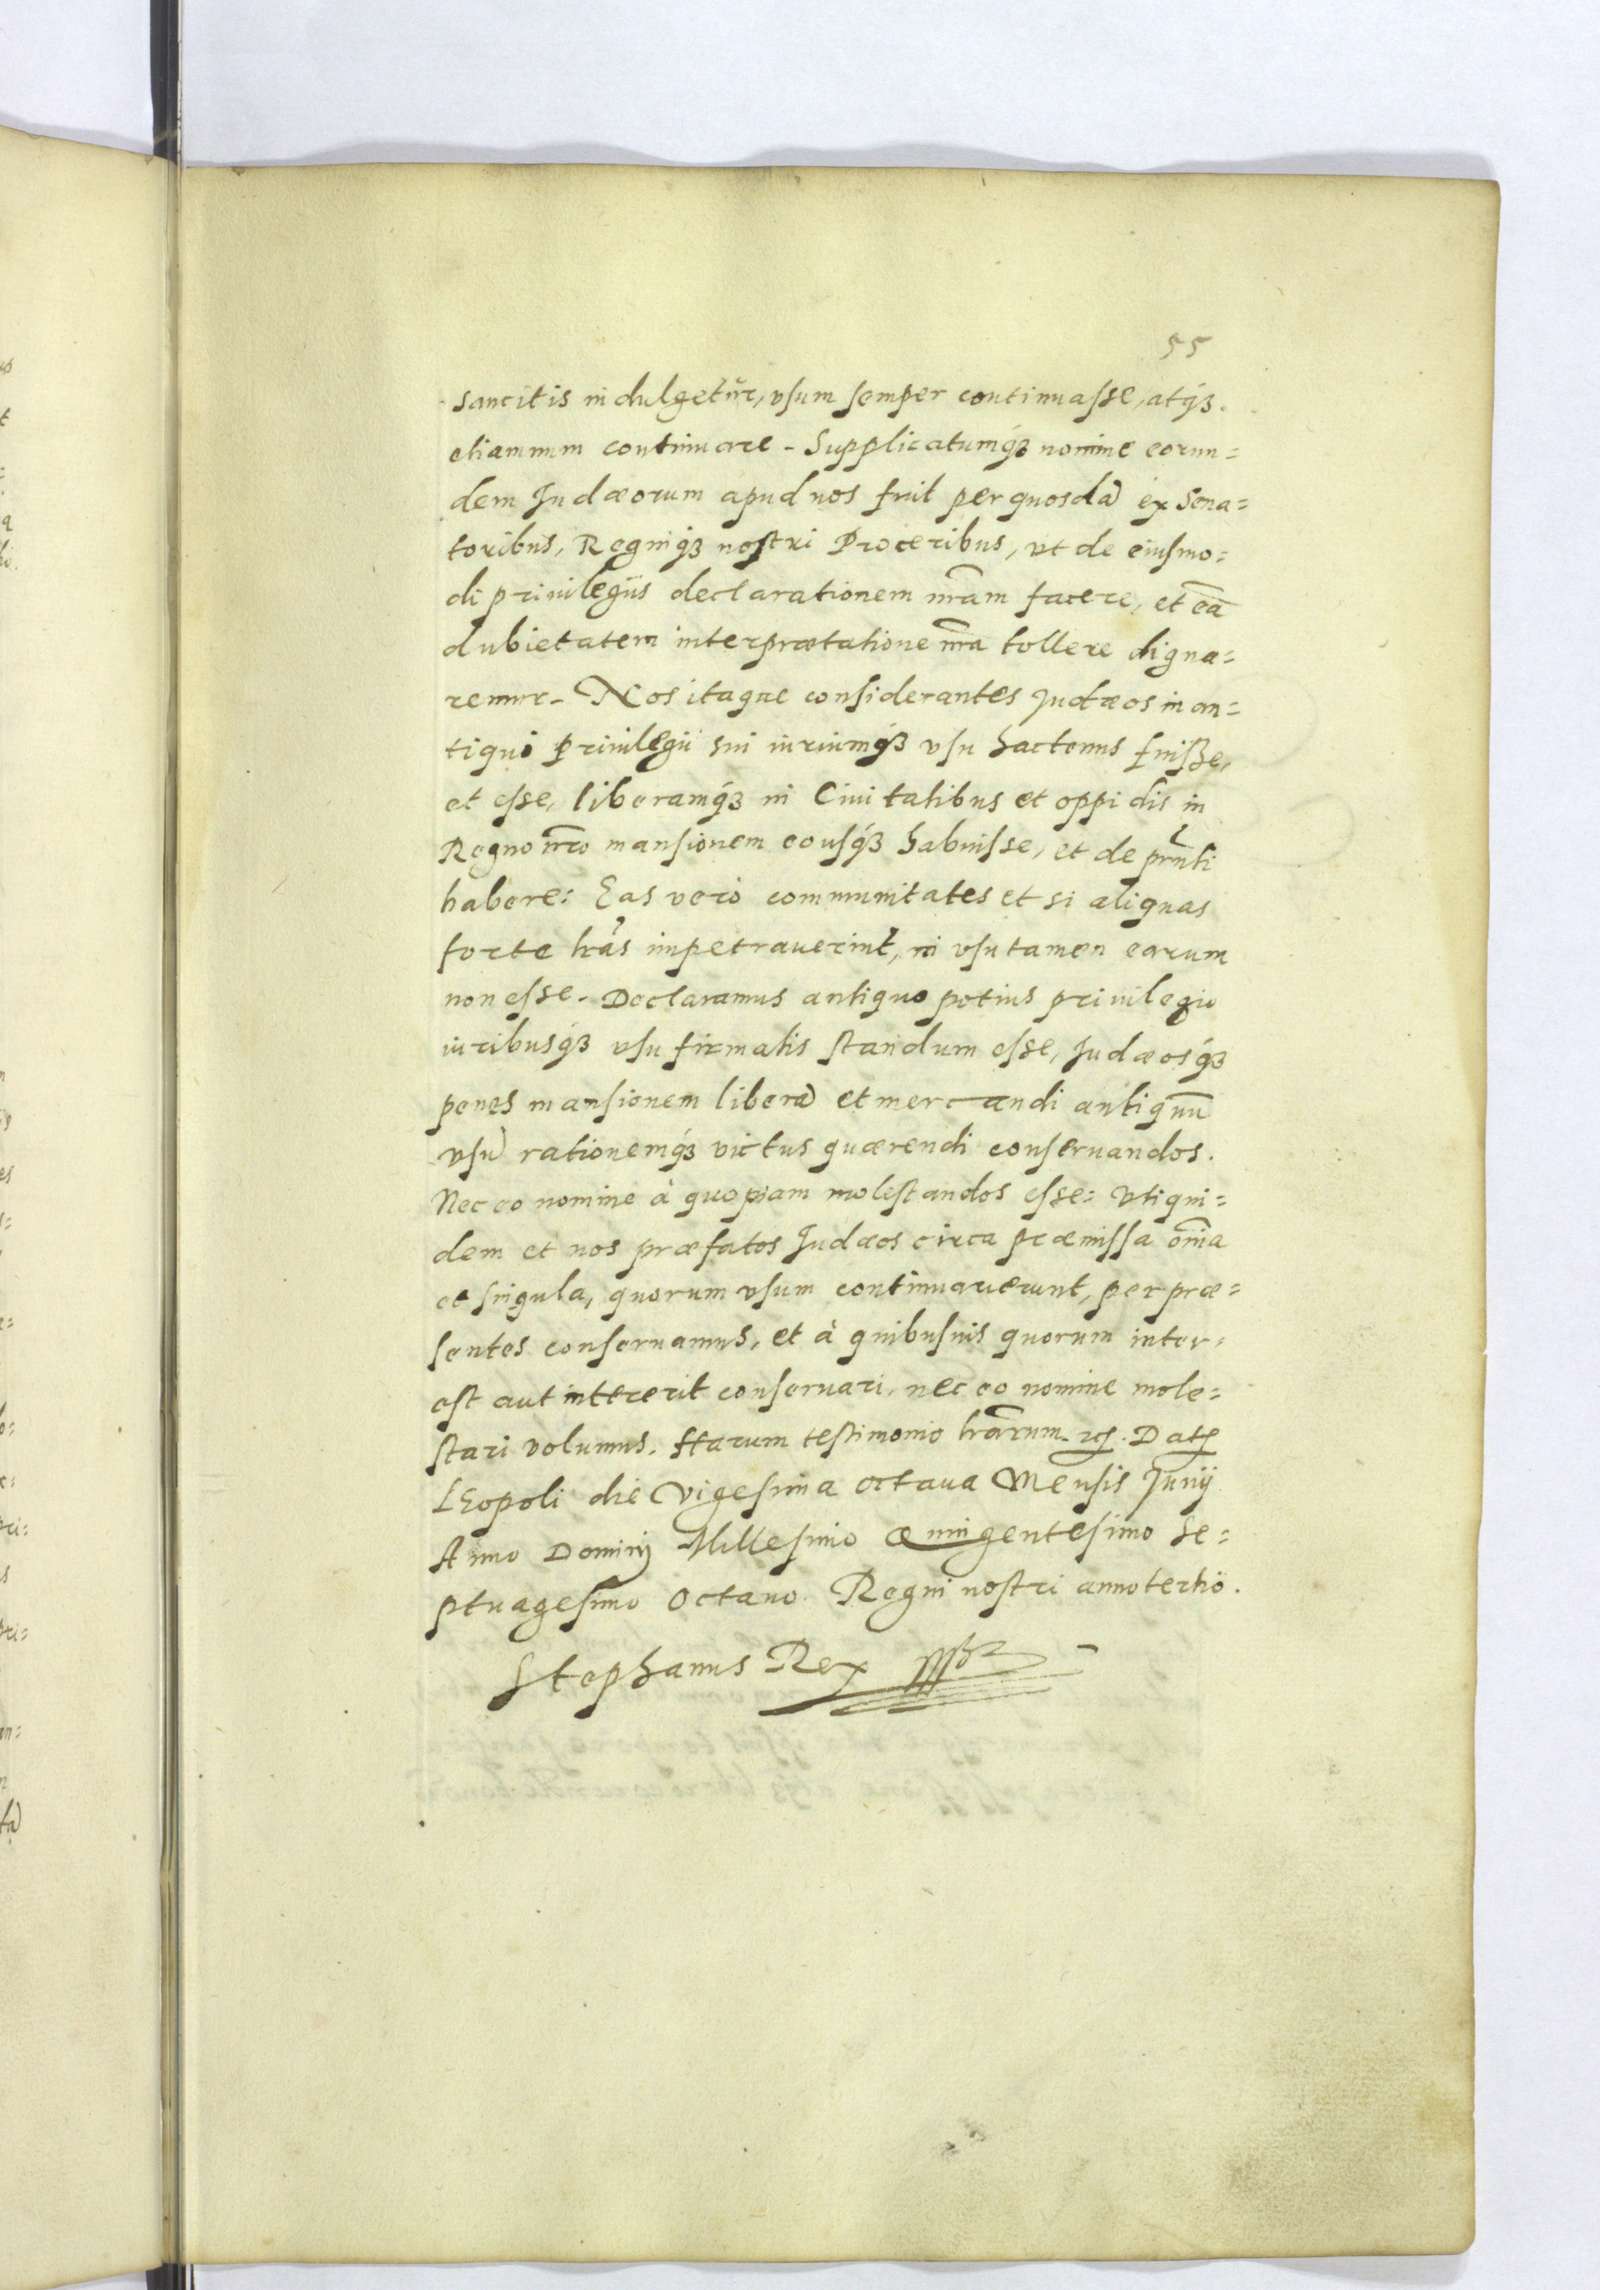 55
sancitis indulgetur, vsum semper continuasse, atq́ꝫ
etiamnum continuare - Supplicatumq́ꝫ nomine eorun=
dem Judæorum apud nos fuit per quosdã ex Sena=
toribus, Regniqꝫ nostri Proceribus, vt de eiusmo=
di priuilegiis declarationem nr̃am facere, et eã
dubietatem interprætatione nr̃a tollere digna=
remur - Nos itaque considerantes Judæos in an=
tiqui priuilegii sui iuriumq́ꝫ vsu hactenus fuiße,
et esse, liberamq́ꝫ in Ciuitatibus et oppidis in
Regno nr̃o mansionem eousq́ꝫ habuisse, et de pr̃nti
habere: Eas verò communitates et si aliquas
forte lr̃as impetrauerint, in vsu tamen earum
non esse - Declaramus antiquo potius priuilegio
iuribusq́ꝫ vsu firmatis standum esse, Judæosq́ꝫ
penes mansionem liberã et mercandi antiquũ
vsũ rationemq́ꝫ victus quærendi conseruandos.
Nec eo nomine à quopiam molestandos esse: Vtiqui=
dem et nos præfatos Judæos circa præmissa om̃ia
et singula, quorum vsum continuauerunt, per præ=
sentes conseruamus, et à quibusuis quorum inter=
est aut intererit conseruari, nec eo nomine mole=
stari volumus. Harum testimonio lr̃arum. rc̃. Datꝭ
LEopoli die Vigesima octaua Mensis Junij
Anno Dominj Millesimo Quingentesimo Se=
ptuagesimo Octauo Regni nostri anno tertio.
Stephanus Rex